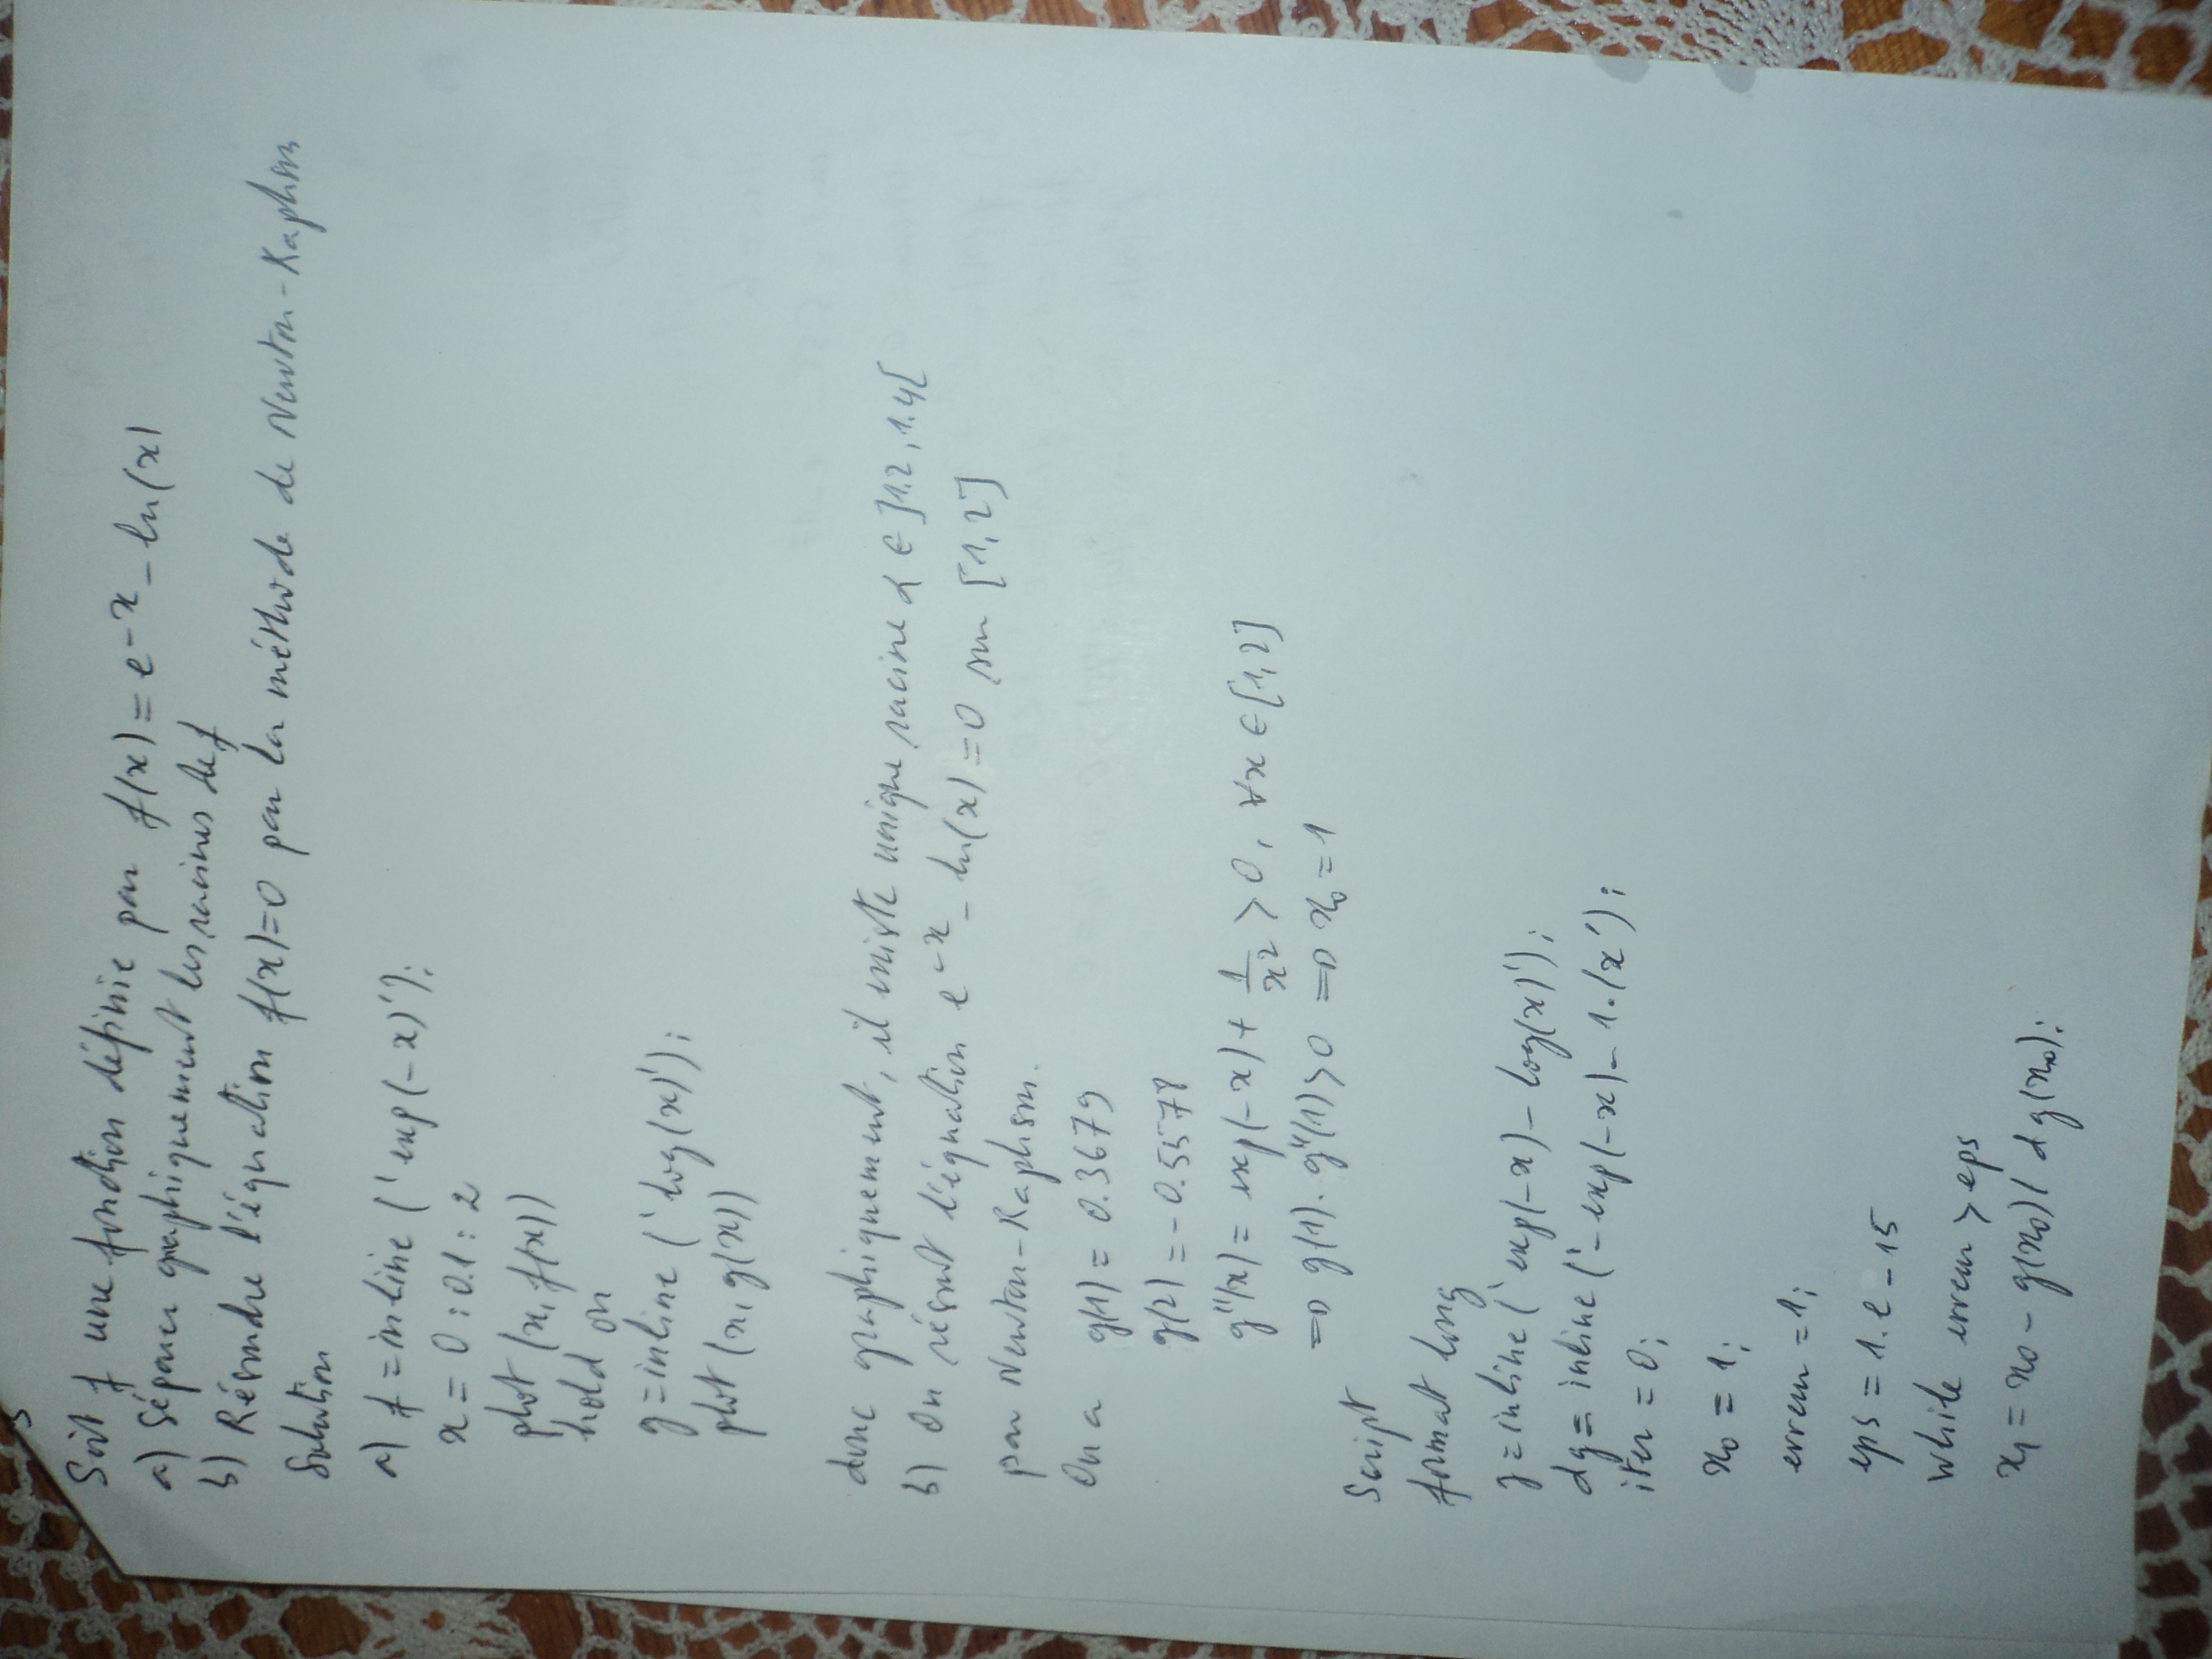 Soit f une fonction définie par f(x) = e^-x - ln(x)
a) Séparer graphiquement les racines de f
b) Résoudre l'équation f(x)=0 par la méthode de Newton-Raphson
Solution
a) f = inline ('exp(-x)');
x = 0 : 0.1 : 2
plot (x, f(x))
hold on
g = inline ('log(x)');
plot (x, g(x))
donc graphiquement, il existe unique racine α ∈ ]1.2, 1.4[
b) On résout l'équation e^-x - ln(x) = 0 sur [1, 2]
par Newton-Raphson.
On a g(1) = 0.3679
g(2) = -0.5578
g''(x) = exp(-x) + 1/x² > 0, ∀x ∈ [1, 2]
⇒ g(1). g''(1) > 0 ⇒ x₀ = 1
Script
format long
g = inline ('exp(-x) - log(x)');
dg = inline ('-exp(-x) - 1./x');
iter = 0;
x₀ = 1;
erreur = 1;
eps = 1.e-15
While erreur > eps
x₁ = x₀ - g(x₀) / dg(x₀);